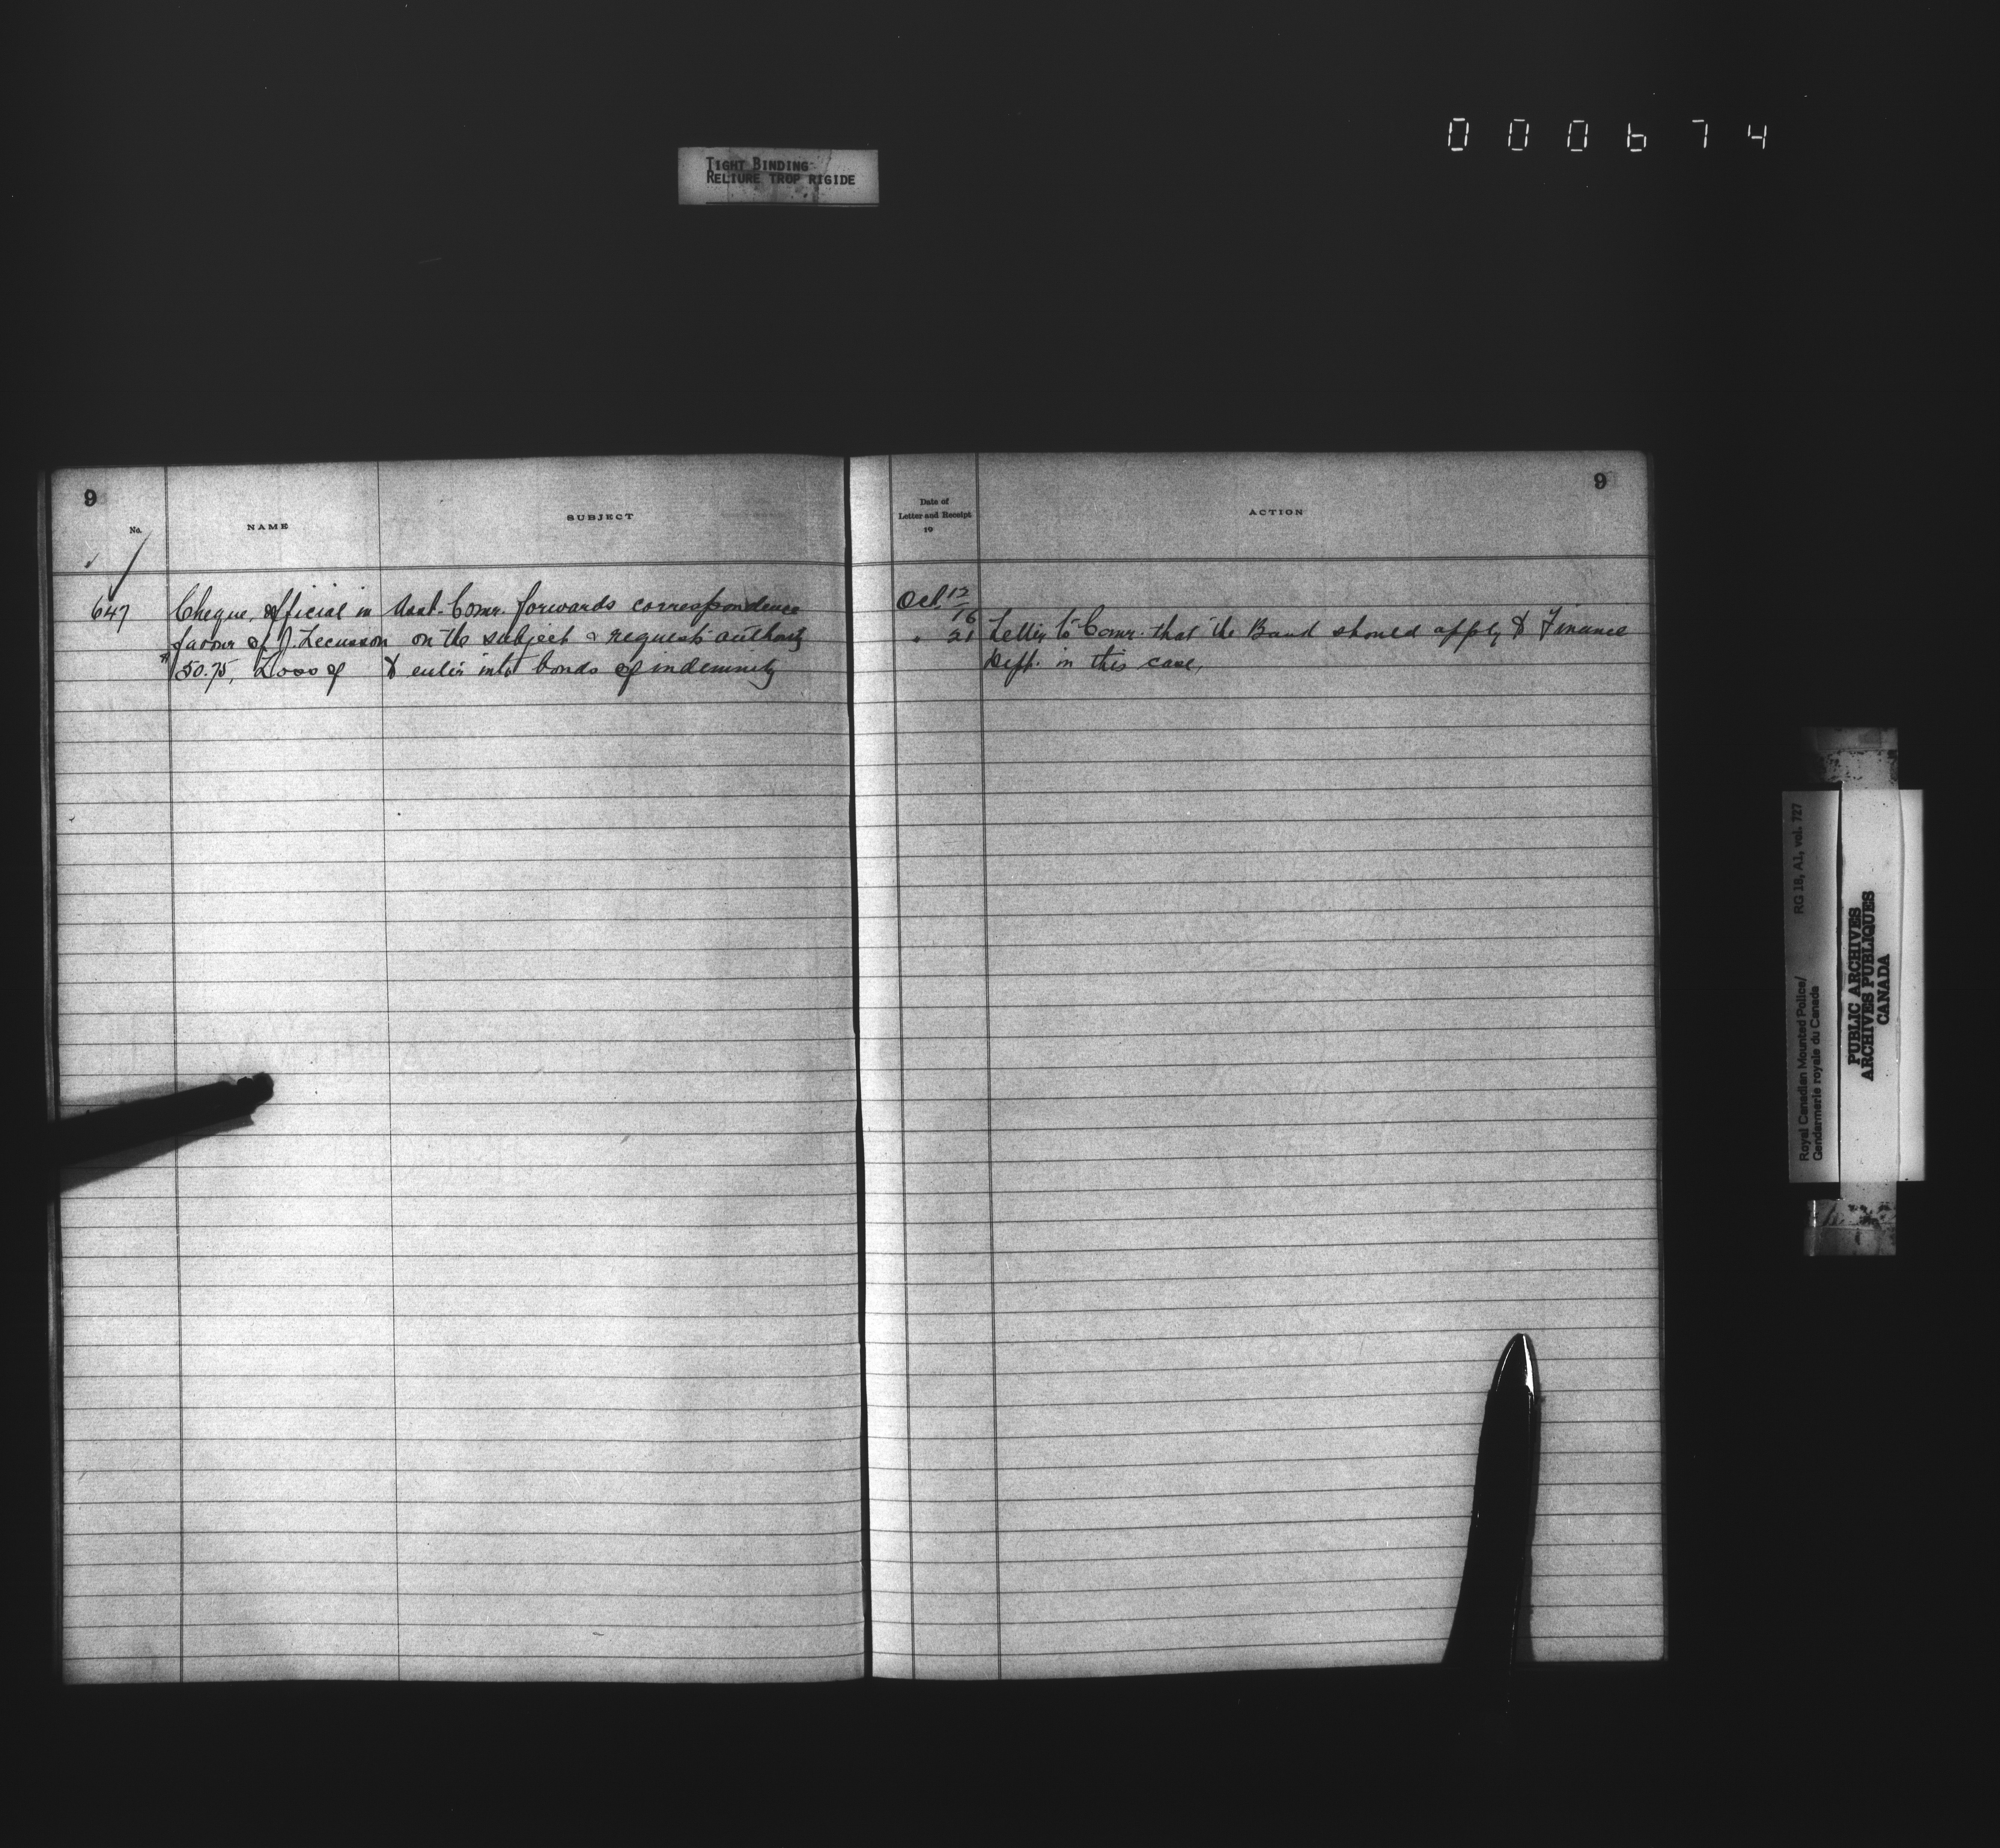 000674
TIGHT BINDING
RELIURE TROP RIGIDE
9
No.
NAME
SUBJECT
647
Cheque, official in
favour of J. Lecusson
$50.75, Loss of
Asst. Comr. forwards correspondence
on the subject & requests authority
to enter into bonds of indemnity
Date of
Letter and Receipt
19
ACTION
9
Oct. 12/16
" 21 Letter to Comr. that the Band should apply to Finance
Dept. in this case.
RG 18, A1, vol. 727
Royal Canadian Mounted Police/
Gendarmerie royale du Canada
PUBLIC ARCHIVES
ARCHIVES PUBLIQUES
CANADA